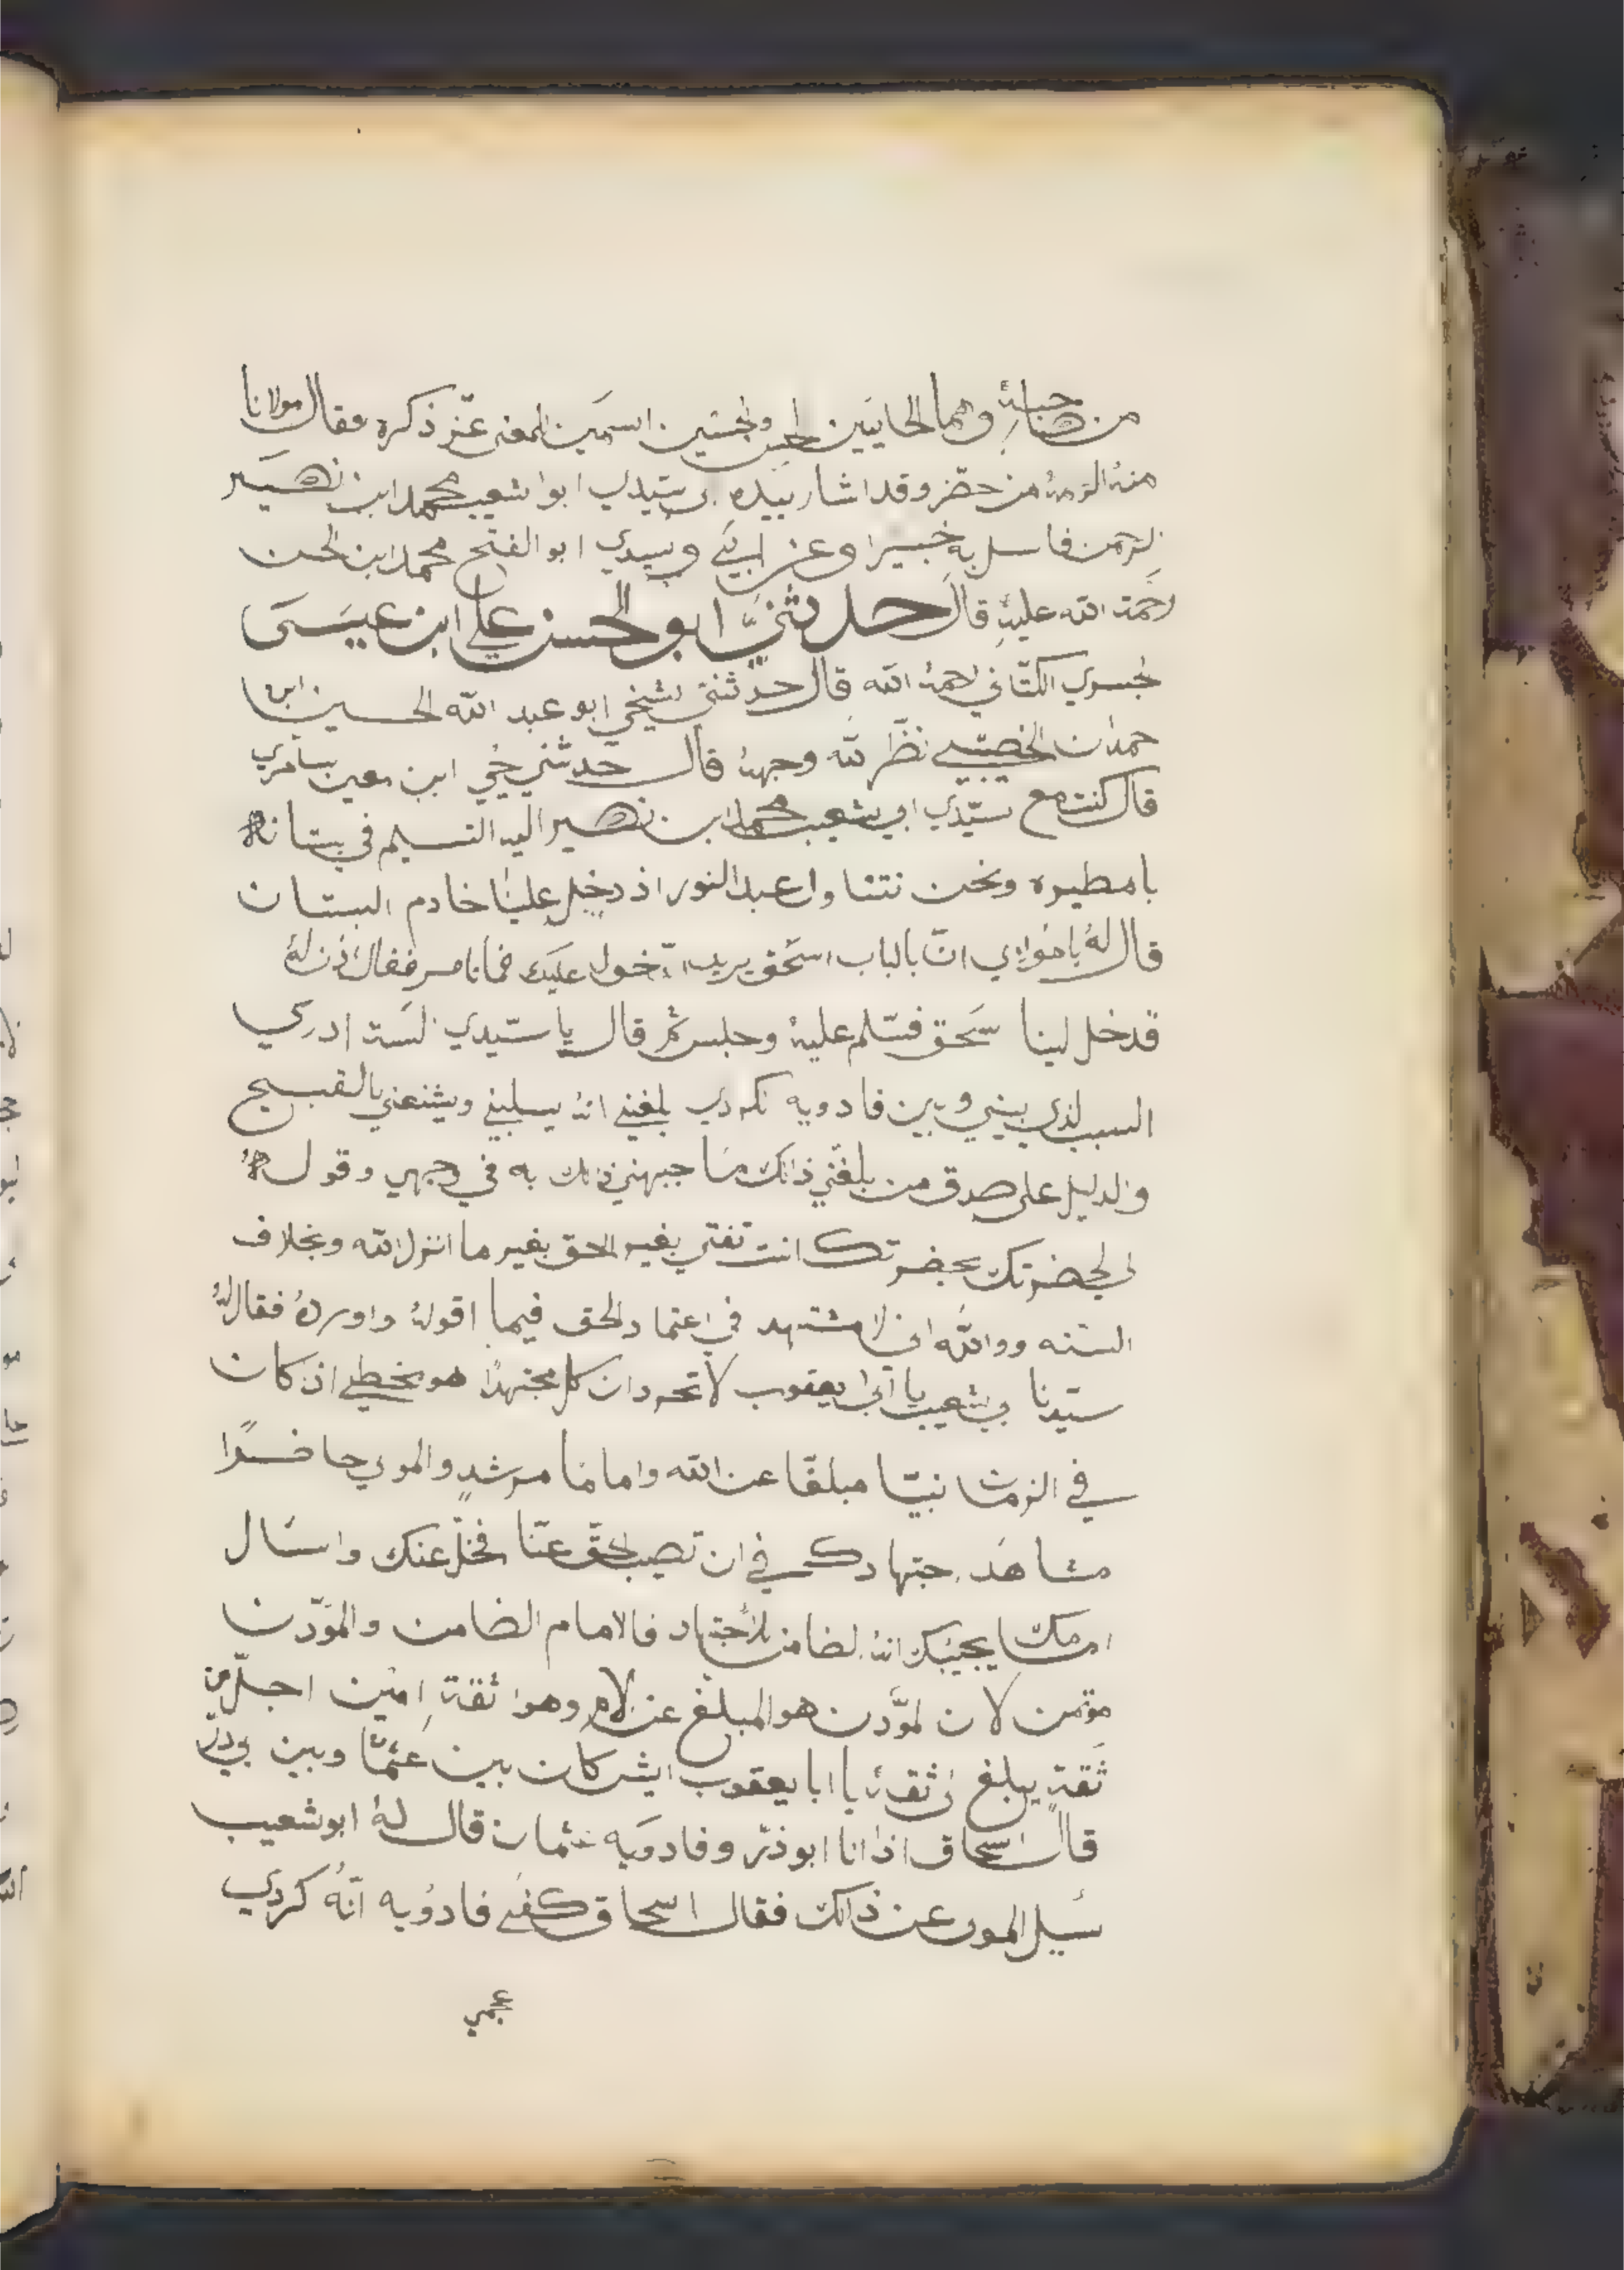 من هنا وهما الحايين الحسن والحسين اسمين لمعنى عّز ذكره فقال مولانا
منه الرحمة من حضر وقد اشار بيده سيّدي ابوا شعيب محمد ابن نصير
الرحمن فاسل به خبيرا وسيدي ابو الفتح محمد ابن الحسن
رحمة الله عليه قال حدثنيّ ابو الحسن علي ابن عيسى
لجسري الكتّاني رحمه الله قال حدثني شيخي ابو عبد الله الحسين ابن
حمدان الخصيبي نظّر لله وجهه قال حّدثني يحي ابن معين سامري
قال كنت مع سيّدي ابي شعيب محمد ابن نصير اليه التسليم في بستانه
بامطيره ونحن نتناول عبد النور اذ دخل علينا خادم البستان
قال له يا مولاي انّ بالباب اسحق يريد الدّخول عليك فما تامر فقال اذن له
فدخل لينا سحق فسّلم عليه وجلس ثم قال يا سيّدي لست ادري
السبب لذي بيني وبين فادويه لكردي بلغني انه يسلبني ويشنعني بالقبيح
والدليل على صدق من بلغني ذالك ما جبهني ذلك به في وجهي وقوله
لي لحضرتك بحضرتك انت تفتي بغير الحق بغير ما انزل الله وبخلاف
السّنه ووالله اني لامشتهد في اعتماد لحق فيما اقوله واورده فقال له
سيّدنا بي شعيب يا ابي يعقوب لا تحرد ان كل مجتهدًا هو مخطي اذ كان
في الزمان نبيّا مبلغًا عن الله واماما مرشدٍ والمولى حاضرًا
مشاهد جتهادك في ان تصيب لحقّ عنّا فخّل عنك واسال
امامك يجيبك انه لضامن للأجتهاد فالامام الضامن والموّدن
مؤتمن لان لموّدن هو المبلّغ عن الامام وهوا ثقة امين اجلّ من
ثقةٍ يبلغ لى ثقة يا ابا يعقوب ايش كان بين عثمّا وبين بي ذر
قال اسحاق اذا انا ابو ذرّ وفادويه عثمان قال له ابو شعيب
سيل المولى عن ذالك فقال اسحاق كفى فادويه انّه كردي
عجمي